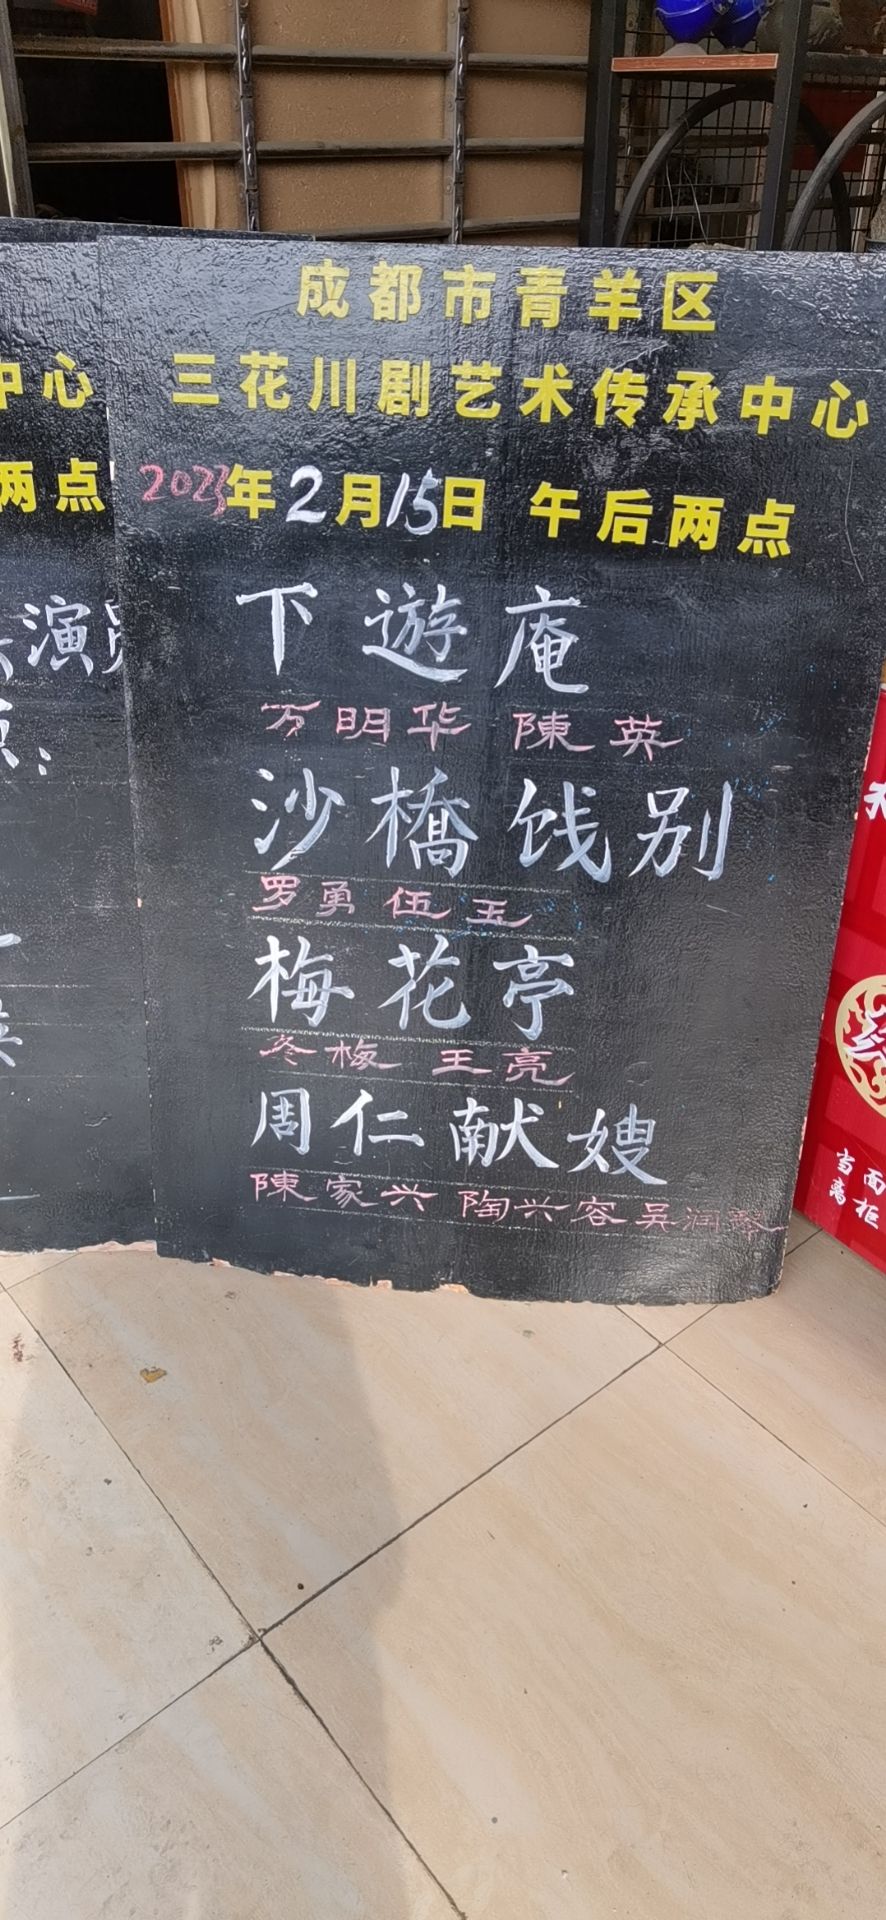 成都市青羊区
三花川剧艺术传承中心
2023年2月15日 午后两点
下遊庵
万明华 陳英
沙橋饯别
罗勇 伍玉
梅花亭
冬梅 王亮
周仁献嫂
陳家兴 陶兴容 吴润琴
中心
两点
演
当面
离柜